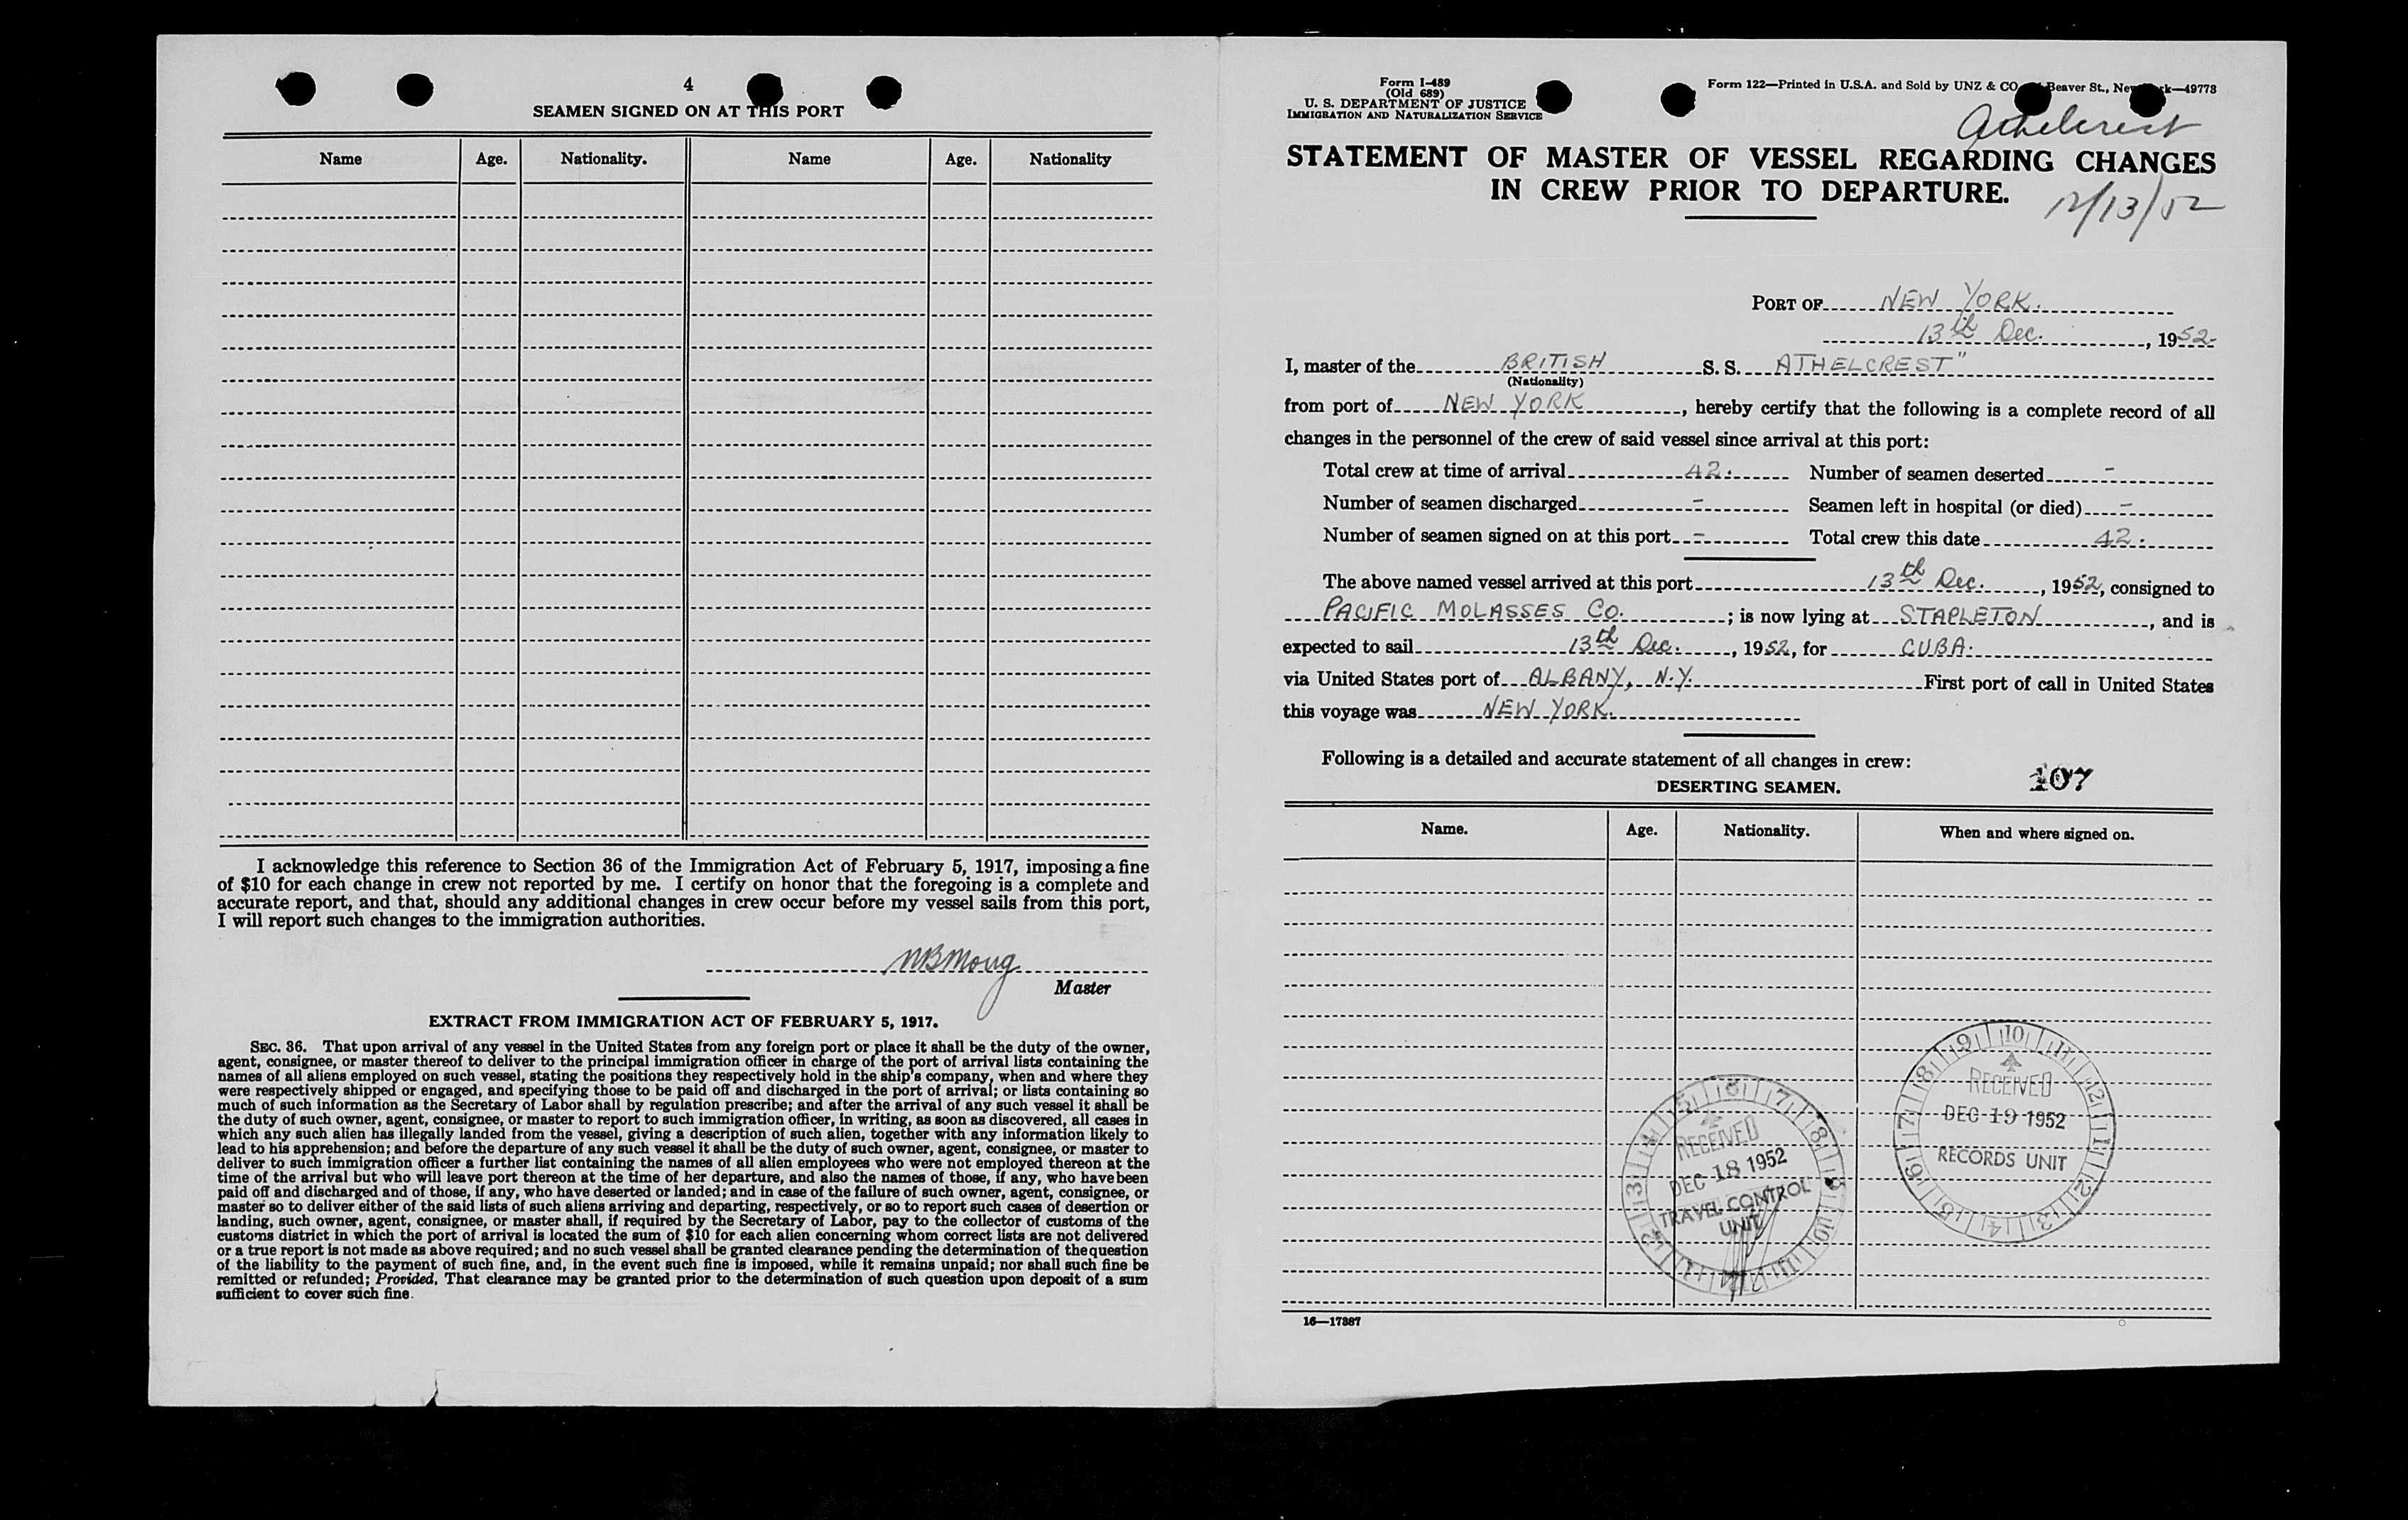 4
SEAMEN SIGNED ON AT THIS PORT
Name Age. Nationality. Name Age. Nationality
I acknowledge this reference to Section 36 of the Immigration Act of February 5, 1917, imposing a fine
of $10 for each change in crew not reported by me. I certify on honor that the foregoing is a complete and
accurate report, and that, should any additional changes in crew occur before my vessel sails from this port,
I will report such changes to the immigration authorities.
Master
EXTRACT FROM IMMIGRATION ACT OF FEBRUARY 5, 1917.
SEC. 36. That upon arrival of any vessel in the United States from any foreign port or place it shall be the duty of the owner,
agent, consignee, or master thereof to deliver to the principal immigration officer in charge of the port of arrival lists containing the
names of all aliens employed on such vessel, stating the positions they respectively hold in the ship's company, when and where they
were respectively shipped or engaged, and specifying those to be paid off and discharged in the port of arrival; or lists containing so
much of such information as the Secretary of Labor shall by regulation prescribe; and after the arrival of any such vessel it shall be
the duty of such owner, agent, consignee, or master to report to such immigration officer, in writing, as soon as discovered, all cases in
which any such alien has illegally landed from the vessel, giving a description of such alien, together with any information likely to
lead to his apprehension; and before the departure of any such vessel it shall be the duty of such owner, agent, consignee, or master to
deliver to such immigration officer a further list containing the names of all alien employees who were not employed thereon at the
time of the arrival but who will leave port thereon at the time of her departure, and also the names of those, if any, who have been
paid off and discharged and of those, if any, who have deserted or landed; and in case of the failure of such owner, agent, consignee, or
master so to deliver either of the said lists of such aliens arriving and departing, respectively, or so to report such cases of desertion or
landing, such owner, agent, consignee, or master shall, if required by the Secretary of Labor, pay to the collector of customs of the
customs district in which the port of arrival is located the sum of $10 for each alien concerning whom correct lists are not delivered
or a true report is not made as above required; and no such vessel shall be granted clearance pending the determination of the question
of the liability to the payment of such fine, and, in the event such fine is imposed, while it remains unpaid; nor shall such fine be
remitted or refunded; Provided, That clearance may be granted prior to the determination of such question upon deposit of a sum
sufficient to cover such fine.
Form I-489
(Old 689)
U. S. DEPARTMENT OF JUSTICE
IMMIGRATION AND NATURALIZATION SERVICE
Form 122—Printed in U.S.A. and Sold by UNZ & CO Beaver St., New —49773
Athelcrest
STATEMENT OF MASTER OF VESSEL REGARDING CHANGES
IN CREW PRIOR TO DEPARTURE.
12/13/52
PORT OF NEW YORK.
13th Dec. , 1952
I, master of the BRITISH S. S. ATHELCREST"
(Nationality)
from port of NEW YORK , hereby certify that the following is a complete record of all
changes in the personnel of the crew of said vessel since arrival at this port:
Total crew at time of arrival 42. Number of seamen deserted -
Number of seamen discharged - Seamen left in hospital (or died) -
Number of seamen signed on at this port - Total crew this date 42.
The above named vessel arrived at this port 13th Dec. , 1952, consigned to
PACIFIC MOLASSES CO. ; is now lying at STAPLETON , and is
expected to sail 13th Dec. , 1952, for CUBA.
via United States port of ALBANY, N.Y. First port of call in United States
this voyage was NEW YORK.
Following is a detailed and accurate statement of all changes in crew:
107
DESERTING SEAMEN.
Name. Age. Nationality. When and where signed on.
RECEIVED
DEC 19 1952
RECORDS UNIT
RECEIVED
DEC 18 1952
TRAVEL CONTROL
UNIT
16—17387